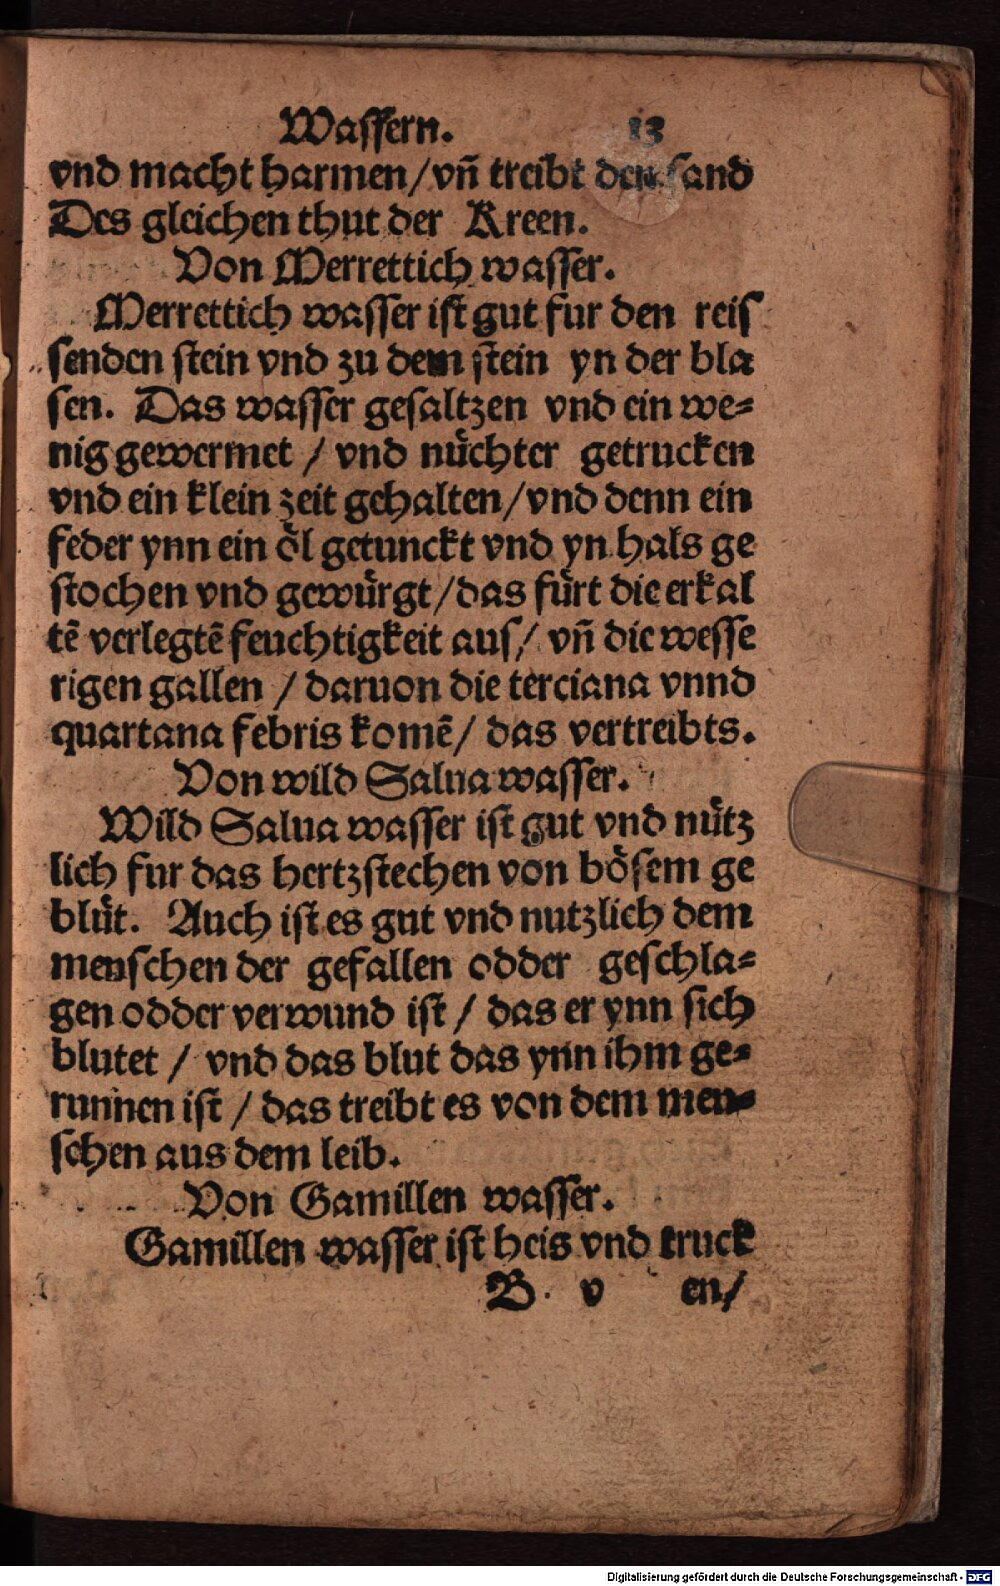 Wassern. 13
vnd macht harmen/vn̄ treibt den sand
Des gleichen thut der Kreen.
Von Merrettich wasser.
Merrettich wasser ist gut fur den reis
senden stein vnd zu dem stein yn der bla
sen. Das wasser gesaltzen vnd ein we⸗
nig gewermet / vnd nuͤchter getrucken
vnd ein klein zeit gehalten/vnd denn ein
feder ynn ein oͤl getunckt vnd yn hals ge
stochen vnd gewuͤrgt/das fuͤrt die erkal
tē verlegtē feuchtigkeit aus/ vn̄ die wesse
rigen gallen / daruon die terciana vnnd
quartana febris komē/ das vertreibts.
Von wild Salua wasser.
Wild Salua wasser ist gut vnd nuͤtz
lich fur das hertzstechen von boͤsem ge
bluͤt. Auch ist es gut vnd nutzlich dem
menschen der gefallen odder geschla⸗
gen odder verwund ist / das er ynn sich
blutet / vnd das blut das ynn ihm ge⸗
runnen ist / das treibt es von dem men⸗
schen aus dem leib.
Von Gamillen wasser.
Gamillen wasser ist heis vnd truck
B v en/
Digitalisierung gefördert durch die Deutsche Forschungsgemeinschaft - DFG